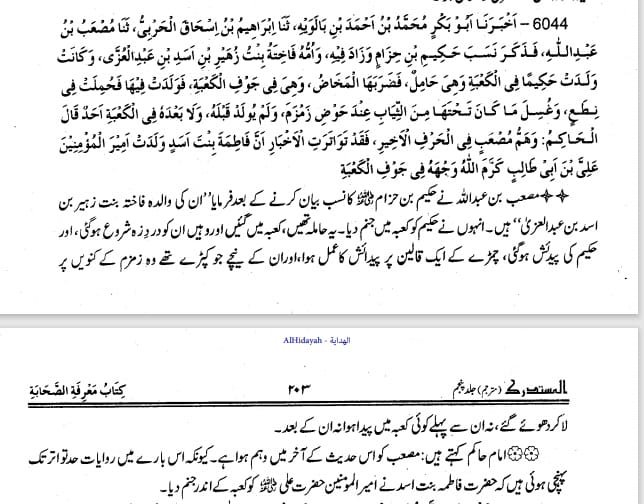 6044 – اَخْبَرَنَا اَبُوْ بَكْرٍ مُحَمَّدُ بْنُ اَحْمَدَ بْنِ بَالَوَيْهِ، ثَنَا اِبْرَاهِيمُ بْنُ اِسْحَاقَ الْحَرْبِيُّ، ثَنَا مُصْعَبُ بْنُ
عَبْدِاللّٰهِ، فَذَكَرَ نَسَبَ حَكِيمِ بْنِ حِزَامٍ وَزَادَ فِيْهِ، وَاُمُّهُ فَاخِتَةُ بِنْتُ زُهَيْرِ بْنِ اَسَدِ بْنِ عَبْدِالْعُزَّى، وَكَانَتْ
وَلَدَتْ حَكِيْمًا فِى الْكَعْبَةِ وَهِىَ حَامِلٌ، فَضَرَبَهَا الْمَخَاضُ، وَهِىَ فِى جَوْفِ الْكَعْبَةِ، فَوَلَدَتْ فِيْهَا فَحُمِلَتْ فِى
نِطَعٍ، وَغُسِلَ مَا كَانَ تَحْتَهَا مِنَ الثِّيَابِ عِنْدَ حَوْضِ زَمْزَمَ، وَلَمْ يُولَدْ قَبْلَهُ، وَلَا بَعْدَهُ فِى الْكَعْبَةِ اَحَدٌ قَالَ
الْحَاكِمُ: وَهَمُّ مُصْعَبٍ فِى الْحَرْفِ الْاَخِيرِ، فَقَدْ تَوَاتَرَتِ الْاَخْبَارِ اَنَّ فَاطِمَةَ بِنْتَ اَسَدٍ وَلَدَتْ اَمِيْرَ الْمُؤْمِنِيْنَ
عَلِىَّ بْنَ اَبِىْ طَالِبٍ كَرَّمَ اللّٰهُ وَجْهَهُ فِىْ جَوْفِ الْكَعْبَةِ
✧✧ مصعب بن عبداللہ نے حکیم بن حزام رضی اللہ عنہ کا نسب بیان کرنے کے بعد فرمایا ”ان کی والدہ فاختہ بنت زہیر بن
اسد بن عبدالعزیٰ“ ہیں۔ انہوں نے حکیم کو کعبہ میں جنم دیا۔ یہ حاملہ تھیں، کعبہ میں گئیں اور وہیں ان کو درد زہ شروع ہوگئی، اور
حکیم کی پیدائش ہوگئی، چمڑے کے ایک قالین پر پیدائش کا عمل ہوا، اور ان کے نیچے جو کپڑے تھے وہ زمزم کے کنویں پر
AlHidayah - الهداية
المستدرک (مترجم) جلد پنجم ۲۰۳ كِتَابُ مَعْرِفَةِ الصَّحَابَةِ
لا کر دھوئے گئے، نہ ان سے پہلے کوئی کعبہ میں پیدا ہوا نہ ان کے بعد۔
۞۞ امام حاکم کہتے ہیں: مصعب کو اس حدیث کے آخر میں وہم ہوا ہے۔ کیونکہ اس بارے میں روایات حد تواتر تک
پہنچی ہوئی ہیں کہ حضرت فاطمہ بنت اسد نے امیر المومنین حضرت علی رضی اللہ عنہ کو کعبہ کے اندر جنم دیا۔